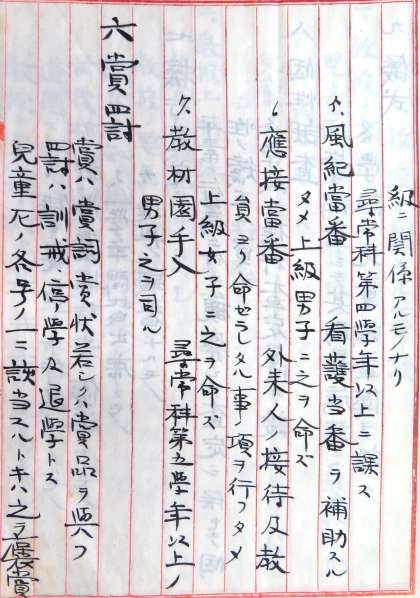 級ニ関係アルモノナリ
尋常科第四學年以上ニ課ス
風紀當番 看護当番ヲ補助スル
タメ上級男子ニ之ヲ命ズ
應接當番 外来人ノ接待及教
員ヨリ命ゼラレタル事項ヲ行フタメ
上級女子ニ之ヲ命ズ
ク、教材園手入 尋常科第五學年以上ノ
男子之ヲ司ル
六 賞罰
賞ハ賞詞賞状若シクハ賞品ヲ與フ
罰ハ訓戒、停學及退學トス
兒童左ノ各号ノ一ニ該当スルトキハ之ヲ